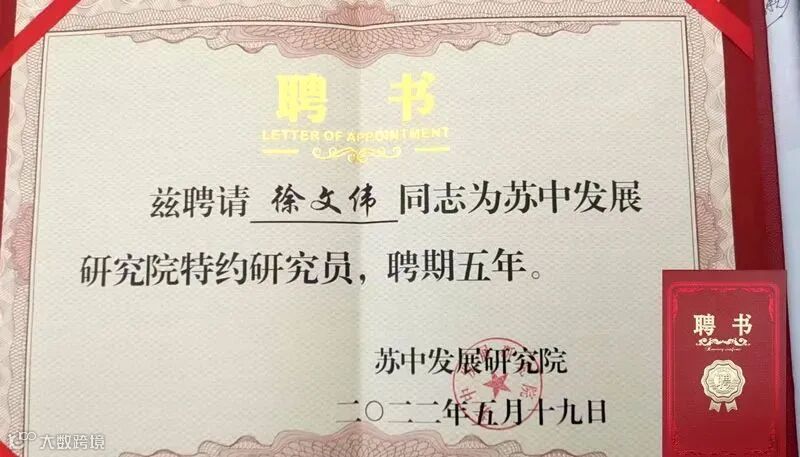 聘 书
LETTER OF APPOINTMENT
兹聘请 徐文伟 同志为苏中发展
研究院特约研究员，聘期五年。
苏中发展研究院
二〇二二年五月十九日
聘 书
大数跨境